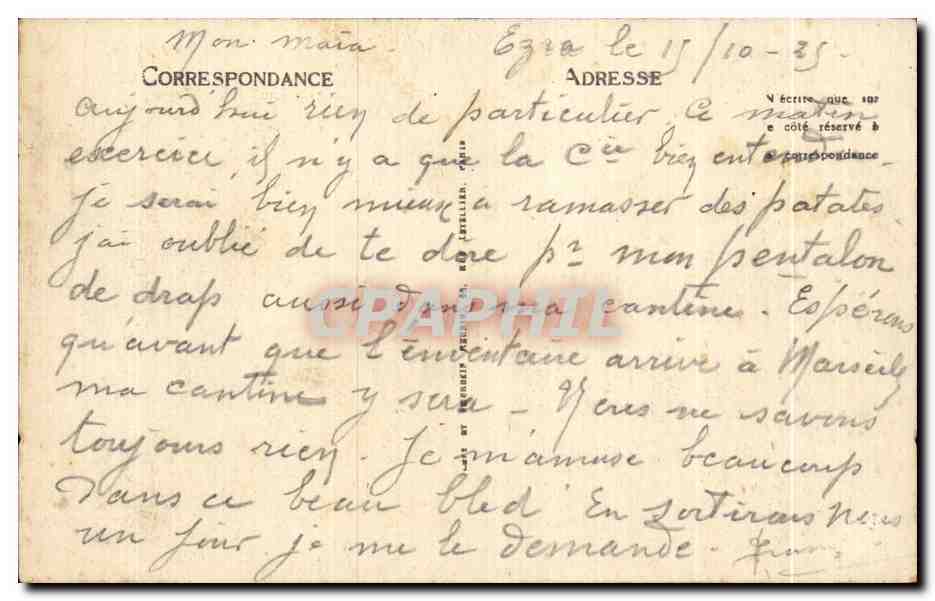 Mon maia. Ezra le 15/10-25.
CORRESPONDANCE ADRESSE
N'écrire que sur
le côté réservé à
la correspondance
aujourd'hui rien de particulier Ce matin
exercice, il n'y a que la Cie bien entendu.
je serai bien mieux a ramasser des patates.
j'ai oublié de te dire pr mon pentalon
de drap aussi dans ma cantine. Espérons
qu'avant que l'inventaire arrive à Marseille
ma cantine y sera - Nous ne savons
toujours rien. Je m'amuse beaucoup
dans ce beau bled En sortirons nous
un jour je me le demande.
CPAPHIL